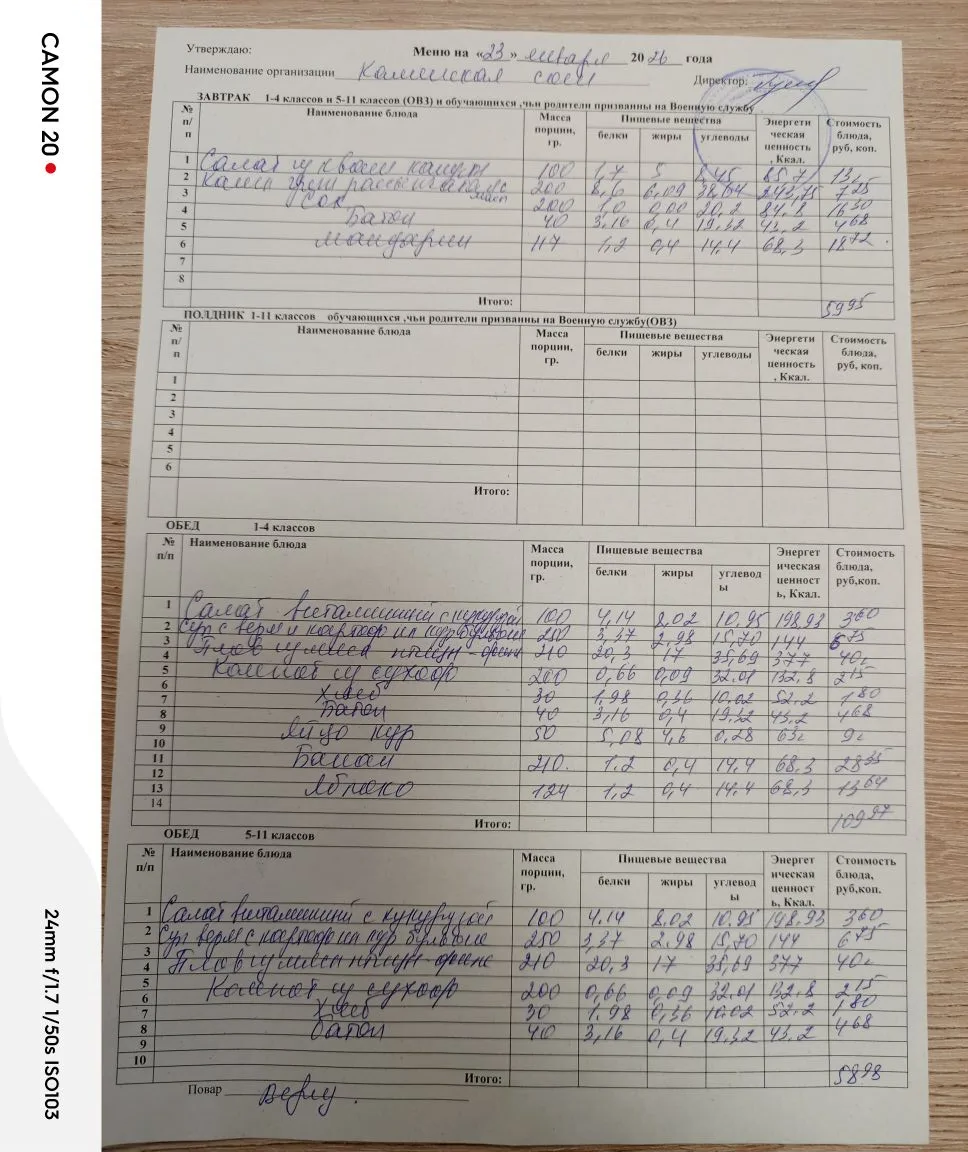 CAMON 20
24mm f/1.7 1/50s ISO103
Утверждаю: Меню на «23» января 2026 года
Наименование организации Каменская сош Директор:
ЗАВТРАК 1-4 классов и 5-11 классов (ОВЗ) и обучающихся ,чьи родители призванны на Военную службу
№ п/п Наименование блюда Масса порции, гр. Пищевые вещества Энергети ческая ценность , Ккал. Стоимость блюда, руб, коп.
белки жиры углеводы
1 Салат из квашен капусты 100 1,7 5 8,45 85,7 13
2 Каша греч рассыпчатая 200 8,6 6,09 38,64 243,75 7 25
3 Сок 200 1,0 0,00 20,2 84,8 16 30
4 Батон 40 3,16 0,4 19,32 43,2 4 68
5 мандарин 117 1,2 0,4 14,4 68,3 18 72
6
7
8
Итого: 59 95
ПОЛДНИК 1-11 классов обучающихся ,чьи родители призванны на Военную службу(ОВЗ)
№ п/п Наименование блюда Масса порции, гр. Пищевые вещества Энергети ческая ценность , Ккал. Стоимость блюда, руб, коп.
белки жиры углеводы
1
2
3
4
5
6
Итого:
ОБЕД 1-4 классов
№ п/п Наименование блюда Масса порции, гр. Пищевые вещества Энергет ическая ценност ь, Ккал. Стоимость блюда, руб,коп.
белки жиры углевод ы
1 Салат витаминный с кукурузой 100 4,14 8.02 10,95 198,93 3 60
2 Суп с верм и картоф на кур бульоне 250 3,37 2,98 15,70 144 6 75
3 Плов из мяса птицы-филе 210 20,3 17 35,69 377 40
4 Компот из сухофр 200 0,66 0,09 32.01 132,8 2 15
5 хлеб 30 1,98 0,36 10,02 52.2 1 80
6 Батон 40 3,16 0,4 19,32 43,2 4 68
7 Яйцо кур 50 5,08 4,6 0,28 63 9
8 Банан 210 1.2 0,4 14,4 68,3 28 35
9 Яблоко 124 1,2 0,4 14,4 68,3 13 64
10
11
12
13
14
Итого: 109 97
ОБЕД 5-11 классов
№ п/п Наименование блюда Масса порции, гр. Пищевые вещества Энергет ическая ценност ь, Ккал. Стоимость блюда, руб,коп.
белки жиры углевод ы
1 Салат витаминный с кукурузой 100 4.14 8.02 10,95 198,93 3 60
2 Суп верм с картоф на кур бульоне 250 3,37 2.98 15,70 144 6 75
3 Плов из мяса птицы-филе 210 20,3 17 35,69 377 40
4 Компот из сухофр 200 0,66 0,09 32.01 132.8 2 15
5 хлеб 30 1,98 0,36 10,02 52.2 1 80
6 батон 40 3,16 0,4 19,32 43.2 4 68
7
8
9
10
Итого: 58 98
Повар